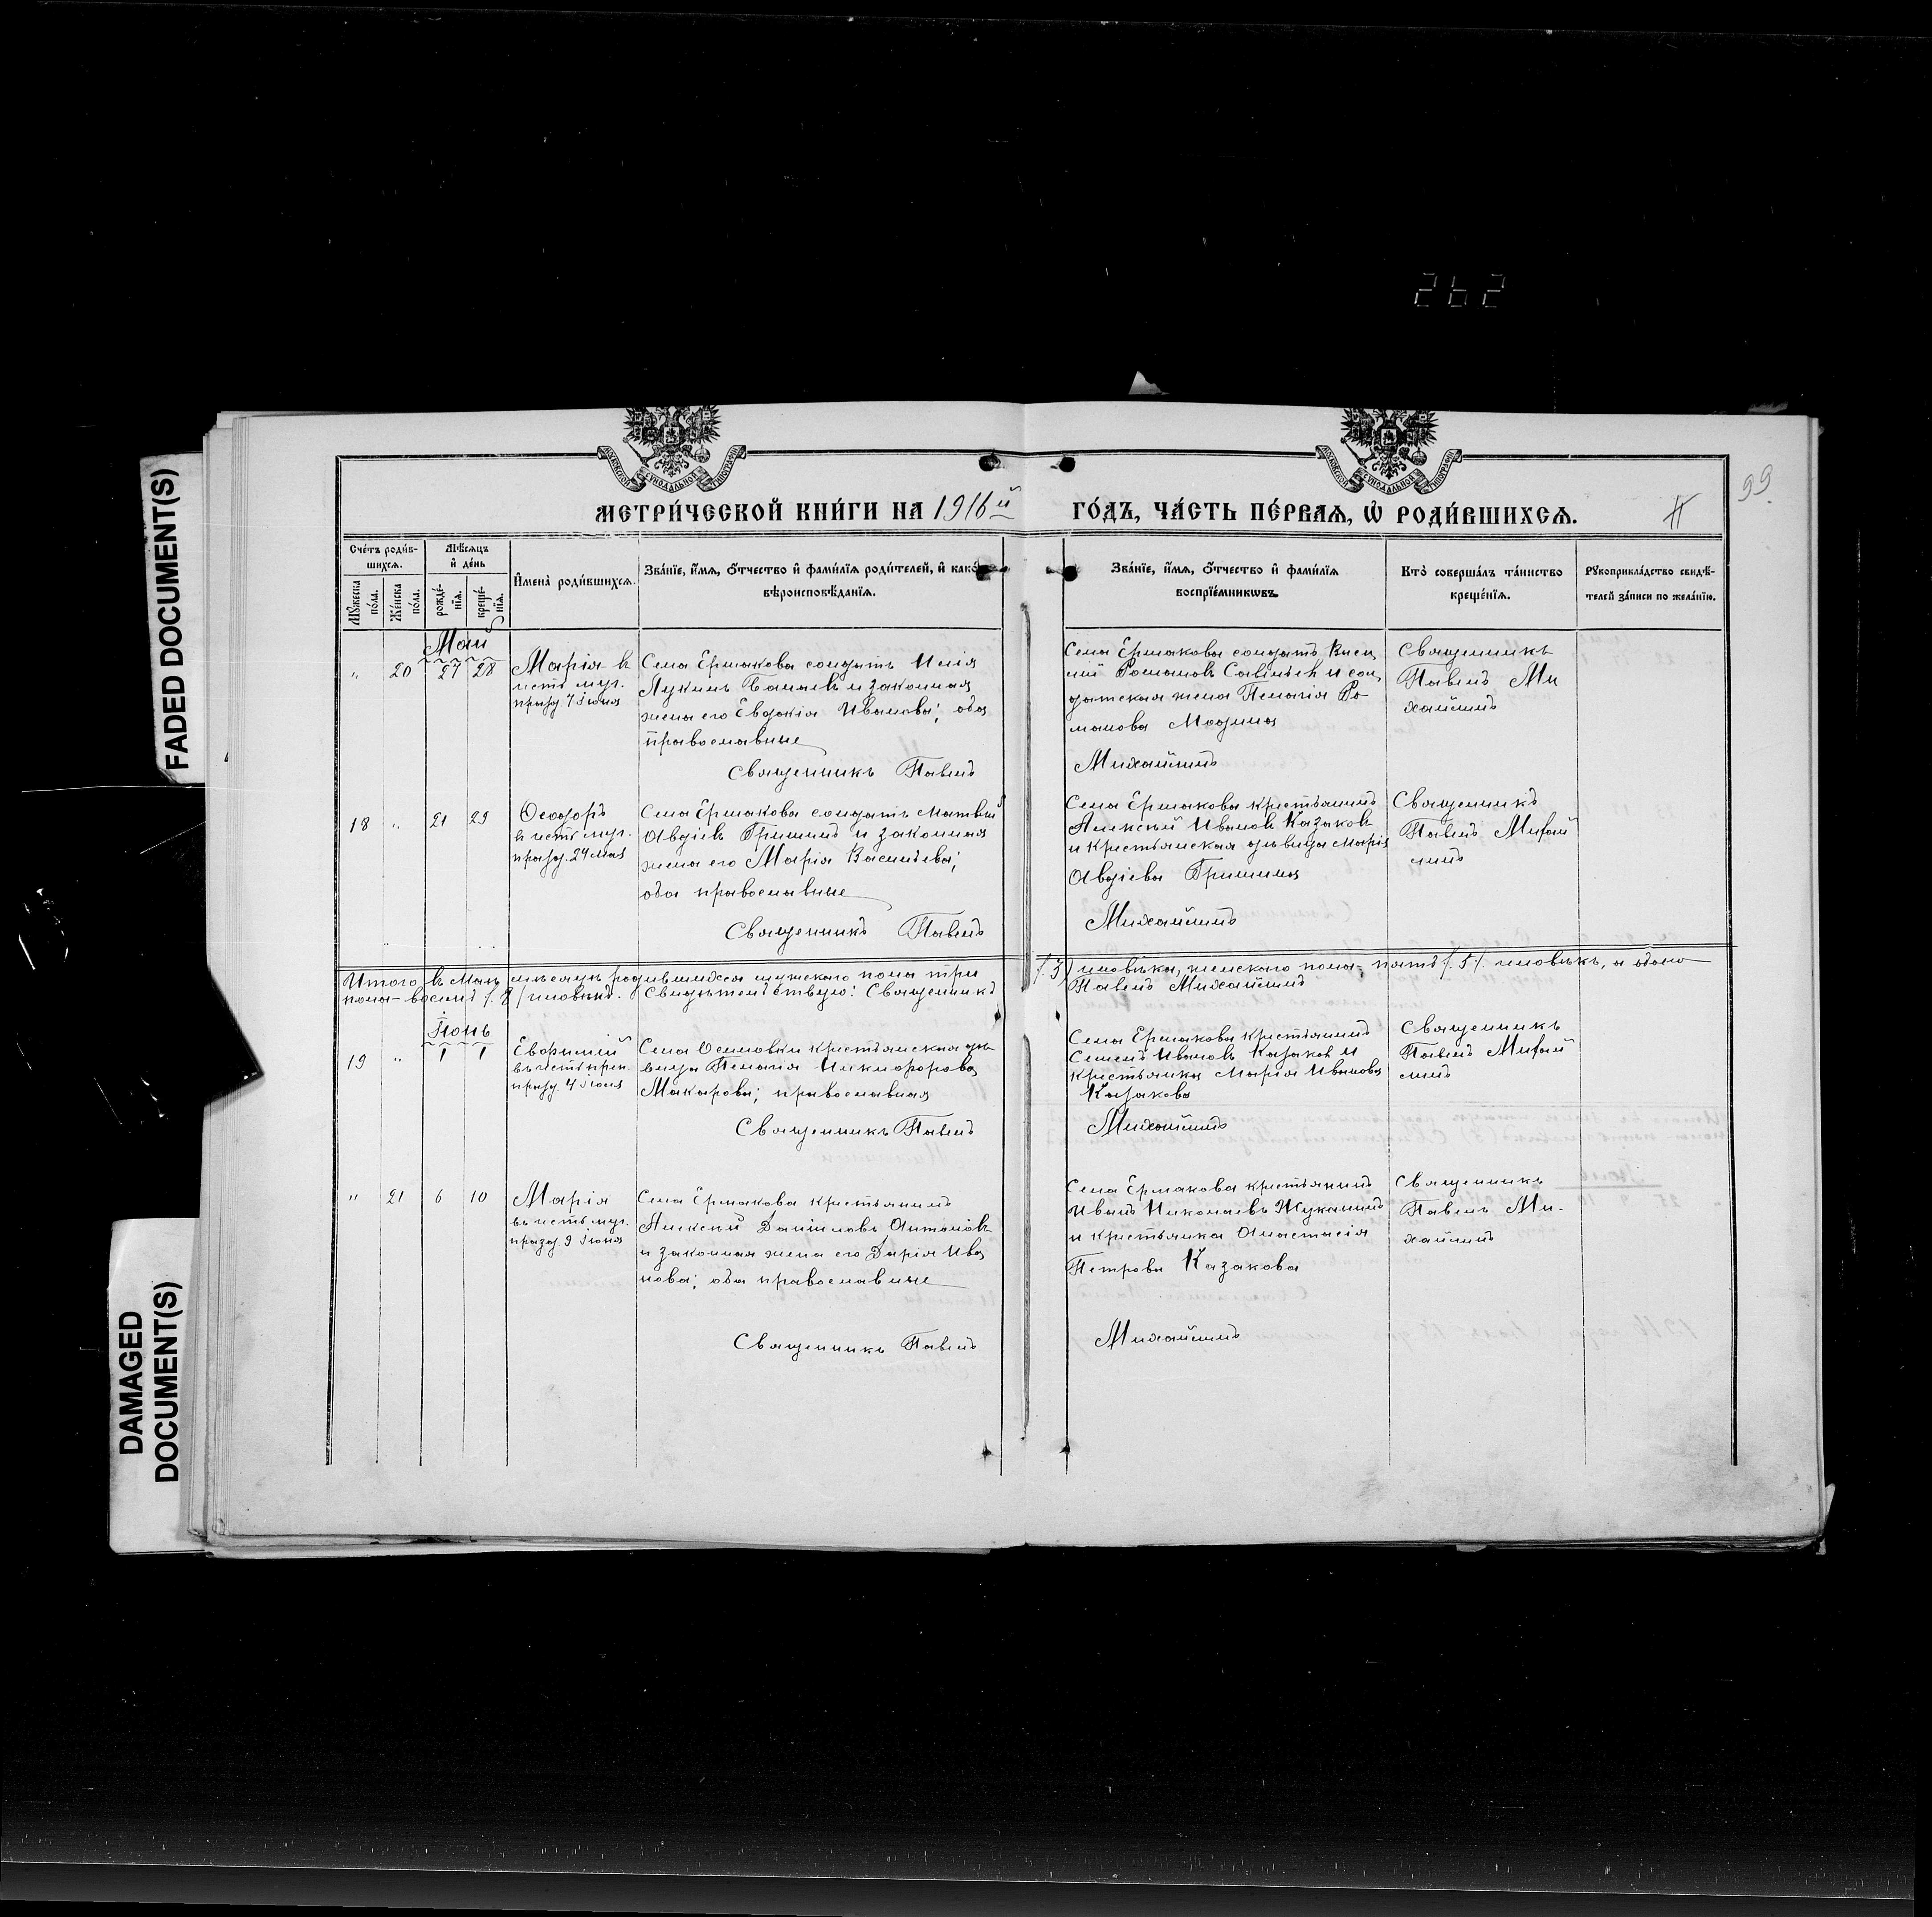 262
FADED DOCUMENT(S)
DAMAGED
DOCUMENT(S)
99
МОСКОВСКОЙ СѴНОДАЛЬНОЙ ТИПОГРАФІИ
МОСКОВСКОЙ СѴНОДАЛЬНОЙ ТИПОГРАФІИ
МЕТРИ́ЧЕСКОЙ КНИ́ГИ НА 1916й ГО́ДЪ, ЧА́СТЬ ПЕ́РВАЯ, Ѡ РОДИ́ВШИХСЯ.
Сче́тъ роди́в-
шихся.
Мꙋ́жеска
по́ла.
Же́нска
по́ла.
Мѣ́сяцъ
и҆ де́нь
рожде́-
нїя.
креще́-
нїя.
И҆мена̀ роди́вшихся.
Зва́нїе, и҆́мя, ѻ҆́тчество и҆ фами́лїя роди́телей, и҆ како́
вѣроисповѣ́данїя.
Зва́нїе, и҆́мя, ѻ҆́тчество и҆ фами́лїя
воспрїе́мникѡвъ.
Кто̀ соверша́лъ та́инство
креще́нїя.
Рꙋкоприкла́дство свидѣ́-
телей за́писи по жела́нїю.
Май
" 20 27 28
Марія в
честь муч.
празд. 7 Іюня
Села Ермакова солдатъ Илія
Лукинъ Балаев и законная
жена его Евдокія Иванова; оба
православные
Священникъ Павелъ
Села Ермакова солдатъ Васи
лій Романов Савельев и сол
датская жена Пелагія Ро
манова Модина
Михайлинъ
Священникъ
Павелъ Ми
хайлинъ
18 " 21 29
Ѳеодоръ
в честь муч.
празд. 24 Мая
Села Ермакова солдатъ Матвей
Авдіев Гришинъ и законная
жена его Марія Васильева;
оба православные
Священникъ Павелъ
Села Ермакова крестьянинъ
Алексѣй Иванов Казаков
и крестьянская дѣвица Марія
Авдіева Гришина
Михайлинъ
Священникъ
Павелъ Михай
линъ
Итого в Маѣ мѣсяцѣ родившихся мужскаго пола три (3) человѣка, женскаго пола- пять (5) человѣкъ, а обоего
пола- восемь (8) человѣкъ. Свидѣтельствую: Священникъ Павелъ Михайлинъ
Іюнь
19 " 1 1
Евфимій
въ честь преп.
празд 4 Іюня
Села Осиновки крестьянская дѣ-
вица Пелагія Никифорова
Макарова; православная
Священникъ Павелъ
Села Ермакова крестьянинъ
Семенъ Иванов Казаков и
крестьянка Марія Иванова
Казакова
Михайлинъ
Священникъ
Павелъ Михай
линъ
" 21 6 10
Марія
въ честь муч.
празд 9 Іюня
Села Ермакова крестьянинъ
Алексѣй Даніиловъ Антонов
и законная жена его Дарія Ива
нова; оба православные
Священникъ Павелъ
Села Ермакова крестьянинъ
Иванъ Николаевъ Жуканинъ
и крестьянка Анастасія
Петрова Казакова
Михайлинъ
Священникъ
Павелъ Ми-
хайлинъ